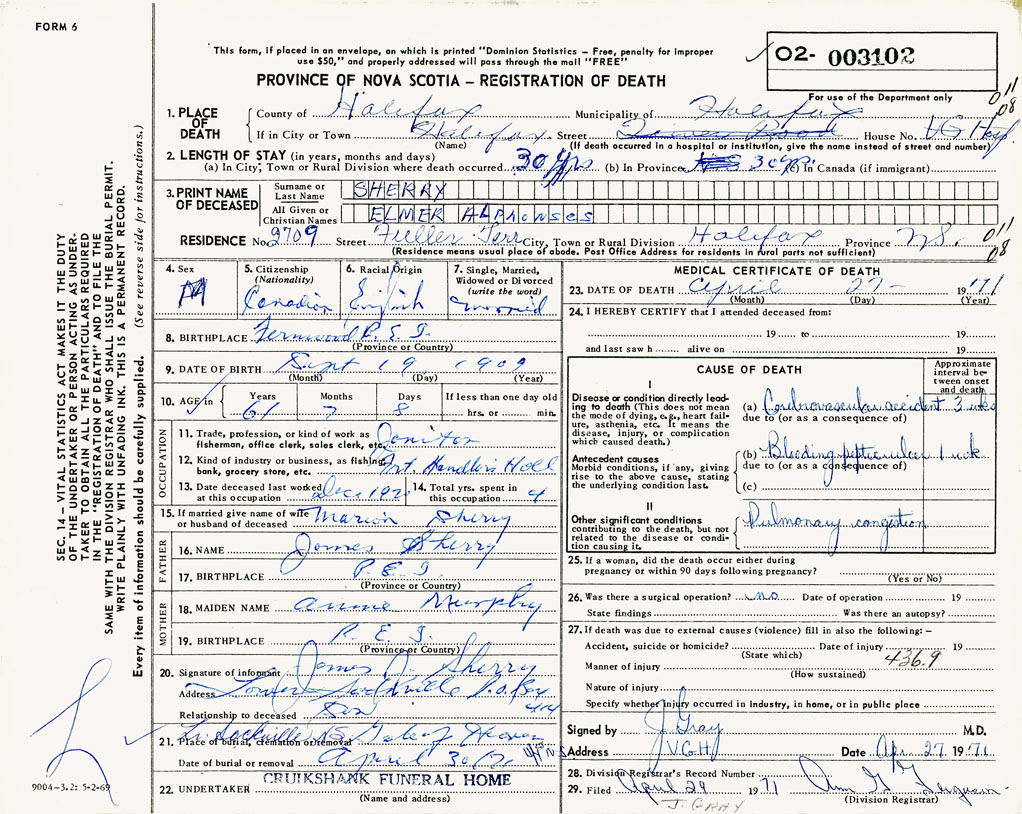 FORM 6
This form, if placed in an envelope, on which is printed "Dominion Statistics – Free, penalty for improper
use $50," and properly addressed will pass through the mail "FREE"
02- 003102
PROVINCE OF NOVA SCOTIA – REGISTRATION OF DEATH
For use of the Department only
011
08
1. PLACE OF DEATH
County of Halifax Municipality of Halifax
If in City or Town Halifax. Street House No. VG Hosp.
(Name) (If death occurred in a hospital or institution, give the name instead of street and number)
2. LENGTH OF STAY (in years, months and days)
(a) In City, Town or Rural Division where death occurred 30 yrs (b) In Province 30 yrs. (c) In Canada (if immigrant)
3. PRINT NAME OF DECEASED
Surname or Last Name SHERRY
All Given or Christian Names ELMER ALPHONSES
RESIDENCE No. 2709 Street Fuller Terr City, Town or Rural Division Halifax Province N.S. 011
08
(Residence means usual place of abode. Post Office Address for residents in rural parts not sufficient)
4. Sex M
5. Citizenship (Nationality) Canadian
6. Racial Origin English
7. Single, Married, Widowed or Divorced (write the word) married
8. BIRTHPLACE Fernwood P.E.I.
(Province or Country)
9. DATE OF BIRTH Sept 19 1909
(Month) (Day) (Year)
10. AGE in Years 61 Months 7 Days 8 If less than one day old
hrs. or min.
OCCUPATION
11. Trade, profession, or kind of work as fisherman, office clerk, sales clerk, etc. Janitor
12. Kind of industry or business, as fishing, bank, grocery store, etc. Frt. Handlers Hall
13. Date deceased last worked at this occupation Dec 1970
14. Total yrs. spent in this occupation 4
15. If married give name of wife or husband of deceased Marion Sherry
FATHER
16. NAME James Sherry
17. BIRTHPLACE P.E.I.
(Province or Country)
MOTHER
18. MAIDEN NAME Annie Murphy
19. BIRTHPLACE P.E.I.
(Province or Country)
20. Signature of informant James A. Sherry
Address Lower Sackville P.O. Box
414
Relationship to deceased Son
21. Place of burial, cremation or removal Lr. Sackville NS Gate of Heaven
Date of burial or removal April 30/71
22. UNDERTAKER CRUIKSHANK FUNERAL HOME
(Name and address)
MEDICAL CERTIFICATE OF DEATH
23. DATE OF DEATH April 27 – 1971
(Month) (Day) (Year)
24. I HEREBY CERTIFY that I attended deceased from:
19 to 19
and last saw h alive on 19
CAUSE OF DEATH
Approximate interval between onset and death
I
Disease or condition directly leading to death (This does not mean the mode of dying, e.g., heart failure, asthenia, etc. It means the disease, injury, or complication which caused death.)
(a) Cerebrovascular accident 3 wks
due to (or as a consequence of)
Antecedent causes
Morbid conditions, if any, giving rise to the above cause, stating the underlying condition last.
(b) Bleeding peptic ulcer 1 wk
due to (or as a consequence of)
(c)
II
Other significant conditions contributing to the death, but not related to the disease or condition causing it.
Pulmonary congestion
25. If a woman, did the death occur either during
pregnancy or within 90 days following pregnancy?
(Yes or No)
26. Was there a surgical operation? no Date of operation 19
State findings Was there an autopsy?
27. If death was due to external causes (violence) fill in also the following: –
Accident, suicide or homicide? Date of injury 19
(State which) 436.9
Manner of injury
(How sustained)
Nature of injury
Specify whether injury occurred in Industry, in home, or in public place
Signed by J. Gray M.D.
Address VGH Date Apr 27 1971
28. Division Registrar's Record Number
29. Filed April 29 1971 Ann G. Ferguson
(Division Registrar)
J. GRAY
SEC. 14 – VITAL STATISTICS ACT MAKES IT THE DUTY
OF THE UNDERTAKER OR PERSON ACTING AS UNDERTAKER TO OBTAIN ALL THE PARTICULARS REQUIRED
IN THE "REGISTRATION OF DEATH" AND TO FILE THE
SAME WITH THE DIVISION REGISTRAR WHO SHALL ISSUE THE BURIAL PERMIT.
WRITE PLAINLY WITH UNFADING INK. THIS IS A PERMANENT RECORD.
Every item of information should be carefully supplied. (See reverse side for instructions.)
9004-3.2: 5-2-69